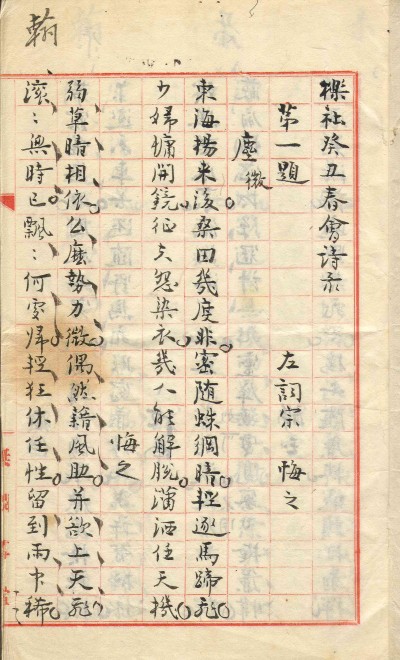 櫟社癸丑春會詩录
第一題　左詞宗　悔之
塵 微
東海揚来後桑田幾度非密随蛛網暗輕逐馬蹄飛
少婦慵開鏡征夫怨染衣幾人能解脱瀟洒任天機
悔之
弱草暗相依么麽勢力微偶然藉風助并欲上天飛
滚々無時已飄々何處歸輕狂休任性留到雨中稀
翰